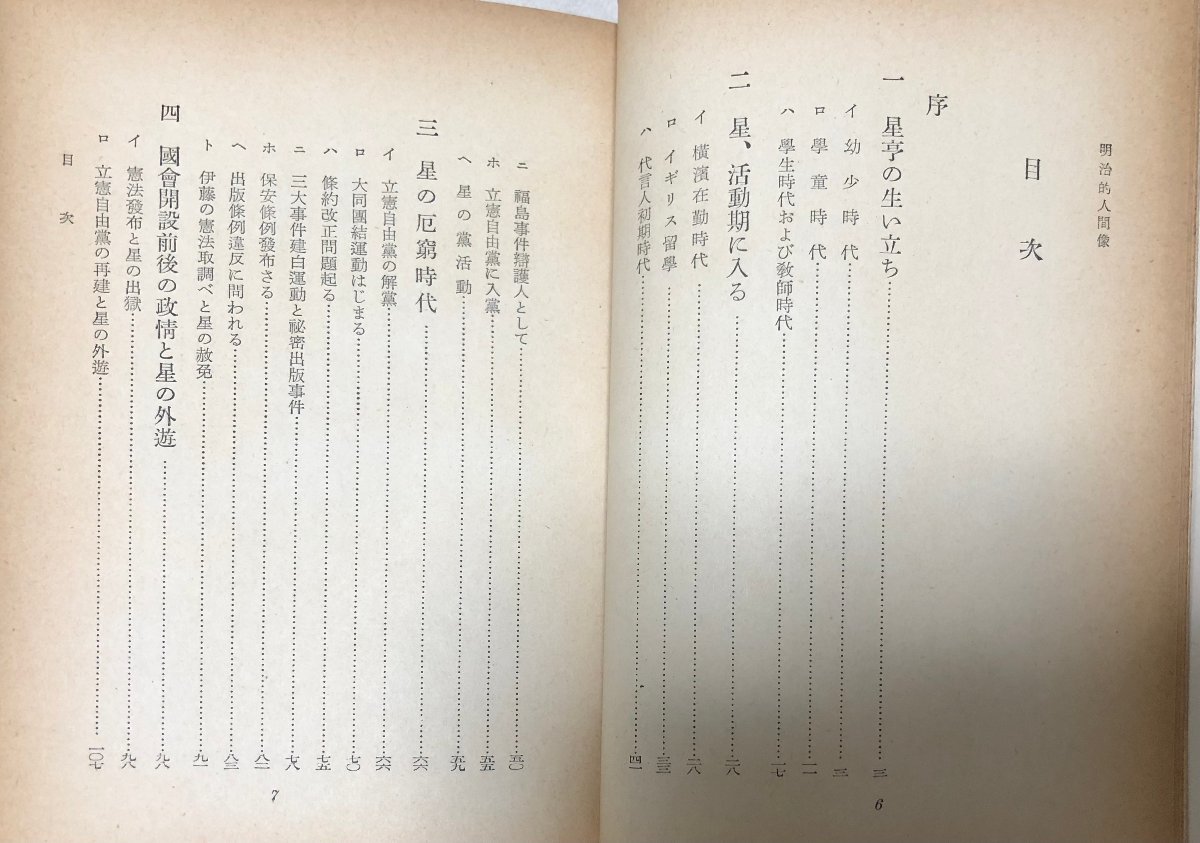 明治的人間像
目次
序
一 星亨の生い立ち……三
イ 幼少時代……三
ロ 學童時代……一一
ハ 學生時代および教師時代……一七
二 星、活動期に入る……二八
イ 橫濱在勤時代……二八
ロ イギリス留學……三三
ハ 代言人初期時代……四一
6
ニ 福島事件辯護人として……五〇
ホ 立憲自由黨に入黨……五五
ヘ 星の黨活動……五九
三 星の厄窮時代……六六
イ 立憲自由黨の解黨……六六
ロ 大同團結運動はじまる……七〇
ハ 條約改正問題起る……七五
ニ 三大事件建白運動と祕密出版事件……七八
ホ 保安條例發布さる……八二
ヘ 出版條例違反に問われる……八三
ト 伊藤の憲法取調べと星の赦免……九一
四 國會開設前後の政情と星の外遊……九八
イ 憲法發布と星の出獄……九八
ロ 立憲自由黨の再建と星の外遊……一〇七
目次
7